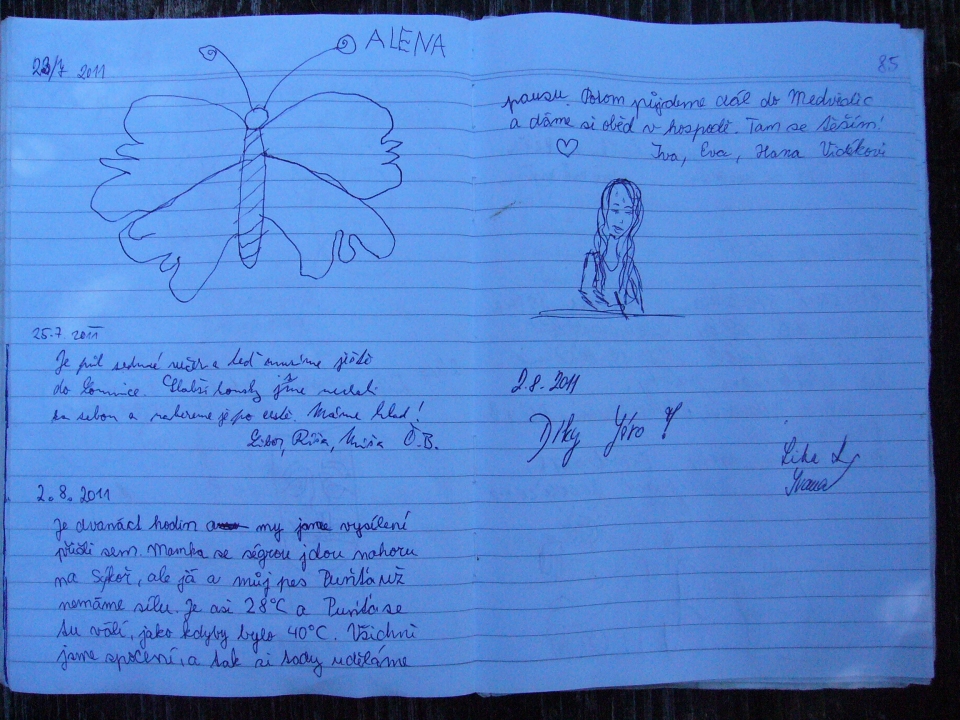 ALENA
23/7 2011
25.7. 2011
Je půl sedmé večer a teď musíme ještě
do Lomnice. Slabší kousky jsme nechali
za sebou a nabereme je po cestě. Máme hlad!
Libor, Ríša, Míša Č.B.
2.8.2011
Je dvanáct hodin a my jsme vysílení
přišli sem. Mamka se ségrou jdou nahoru
na Sýkoř, ale já a můj pes Punťa už
nemáme sílu. Je asi 28°C a Punťa se
tu válí, jako kdyby bylo 40°C. Všichni
jsme spocení, a tak si tady uděláme
85
pausu. Potom půjdeme dál do Medvědic
a dáme si oběd v hospodě. Tam se těším!
♡ Iva, Eva, Hana
2.8.2011
Díky
Ivana